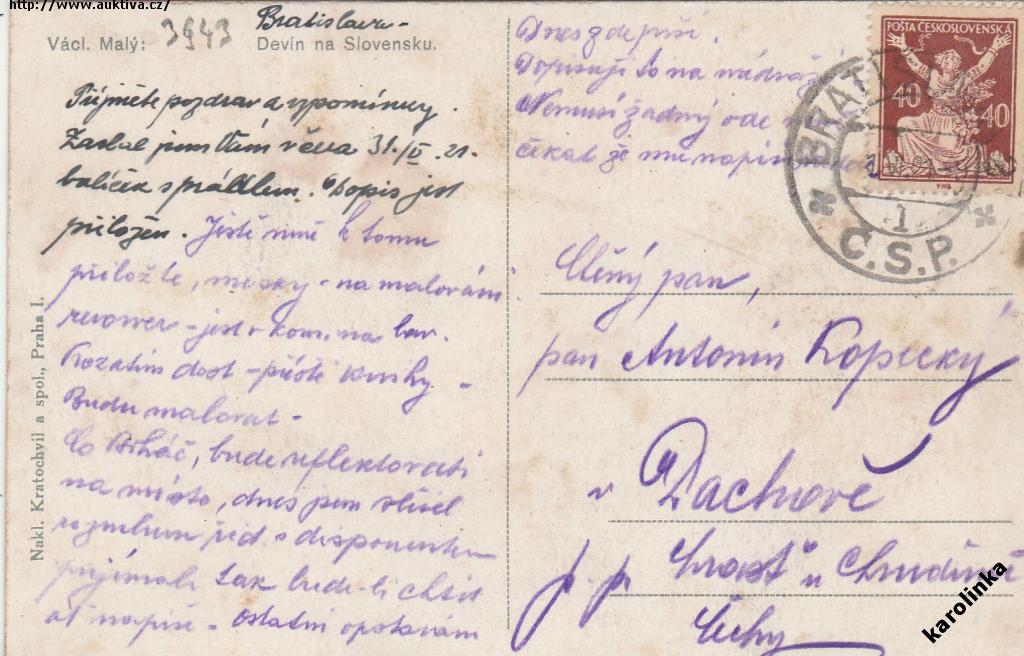 http://www.auktiva.cz/
3943
Bratislava-
Václ. Malý: Devín na Slovensku.
Přijměte pozdrav a vzpomínky.
Zaslal jsem Vám včera 31./V. 21.
balíček s prádlem. Dopis jest
přiložen. Ještě mně k tomu
přiložte, - na malování
- jest v kom. na
dost - příště knihy -
Budu malovat -
Co, bude reflektovati
na místo, dnes jsem slyšel
řed. s disponentem
přijímali tak bude-li chtít
ať napíše - ostatní
Dnes zde prší.
Dopisuji to na nádraží
Nemusí žádný ode
čekat že mu napíši
POŠTA ČESKOSLOVENSKÁ
40 40
BRATISL
1
Č.S.P.
Ctěný pan,
pan Antonín Kopecký
v Dachově
p. p. Hrast u Chrudimě
Čechy
Nakl. Kratochvil a spol., Praha I.
karolinka